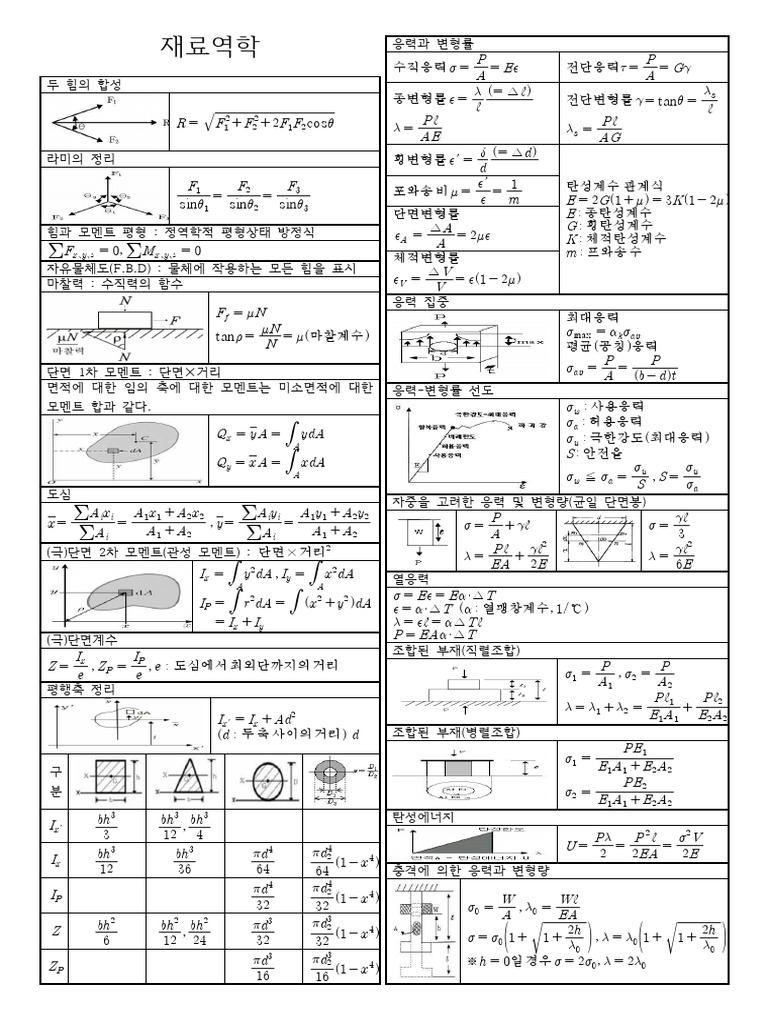 재료역학
두 힘의 합성
F₁
θ
R
F₂
R = √(F₁²+F₂²+2F₁F₂cosθ)
라미의 정리
F₁
θ₃ θ₂
F₂ θ₁ F₃
F₁/sinθ₁ = F₂/sinθ₂ = F₃/sinθ₃
힘과 모멘트 평형 : 정역학적 평형상태 방정식
∑Fx,y,z = 0, ∑Mx,y,z = 0
자유물체도(F.B.D) : 물체에 작용하는 모든 힘을 표시
마찰력 : 수직력의 함수
N
F
μN
마찰력
ρ
N
F_f = μN
tanρ = μN/N = μ(마찰계수)
단면 1차 모멘트 : 단면×거리
면적에 대한 임의 축에 대한 모멘트는 미소면적에 대한
모멘트 합과 같다.
Q_x = y̅A = ∫_A ydA
Q_y = x̅A = ∫_A xdA
도심
x̅ = ∑A_i x_i/∑A_i = (A₁x₁+A₂x₂)/(A₁+A₂), y̅ = ∑A_i y_i/∑A_i = (A₁y₁+A₂y₂)/(A₁+A₂)
(극)단면 2차 모멘트(관성 모멘트) : 단면×거리²
I_x = ∫_A y²dA, I_y = ∫_A x²dA
I_P = ∫r²dA = ∫(x²+y²)dA
= I_x + I_y
(극)단면계수
Z = I_x/e, Z_P = I_P/e, e : 도심에서 최외단까지의 거리
평행축 정리
I_x' = I_x + Ad²
(d : 두축사이의 거리) d
구분
I_x' bh³/3 bh³/12, bh³/4
I_x bh³/12 bh³/36 πd⁴/64 πd₂⁴/64(1−x⁴)
I_P πd⁴/32 πd₂⁴/32(1−x⁴)
Z bh²/6 bh²/12, bh²/24 πd³/32 πd₂³/32(1−x⁴)
Z_P πd³/16 πd₂³/16(1−x⁴)
응력과 변형률
수직응력 σ = P/A = Eϵ
전단응력 τ = P/A = Gγ
종변형률 ϵ = λ/l (=Δl)
λ = Pl/AE
전단변형률 γ = tanθ = λ_s/l
λ_s = Pl/AG
횡변형률 ϵ' = δ/d (=Δd)
포와송비 μ = ϵ'/ϵ = 1/m
단면변형률
ϵ_A = ΔA/A = 2μϵ
체적변형률
ϵ_V = ΔV/V = ϵ(1−2μ)
탄성계수 관계식
E = 2G(1+μ) = 3K(1−2μ)
E : 종탄성계수
G : 횡탄성계수
K : 체적탄성계수
m : 포와송수
응력 집중
P
max
b
d
P
t
최대응력
σ_max = α_k σ_av
평균(공칭)응력
σ_av = P/A = P/((b−d)t)
응력-변형률 선도
극한강도=최대응력
항복응력
파괴강
탄성한도
허용응력
사용응력
E
σ_w : 사용응력
σ_a : 허용응력
σ_u : 극한강도(최대응력)
S : 안전율
σ_w ≦ σ_a = σ_u/S, S = σ_u/σ_a
자중을 고려한 응력 및 변형량(균일 단면봉)
W
P
σ = P/A + γl
λ = Pl/EA + γl²/2E
σ = γl/3
λ = γl²/6E
열응력
σ = Eϵ = Eα·ΔT
ϵ = α·ΔT (α : 열팽창계수, 1/℃)
λ = ϵl = αΔTl
P = EAα·ΔT
조합된 부재(직렬조합)
σ₁ = P/A₁, σ₂ = P/A₂
λ = λ₁+λ₂ = Pl₁/E₁A₁ + Pl₂/E₂A₂
조합된 부재(병렬조합)
σ₁ = PE₁/(E₁A₁+E₂A₂)
σ₂ = PE₂/(E₁A₁+E₂A₂)
탄성에너지
탄성한도
면적A = 탄성에너지 U
U = Pλ/2 = P²l/2EA = σ²V/2E
충격에 의한 응력과 변형량
σ₀ = W/A, λ₀ = Wl/EA
σ = σ₀(1+√(1+2h/λ₀)), λ = λ₀(1+√(1+2h/λ₀))
※h = 0일 경우 σ = 2σ₀, λ = 2λ₀